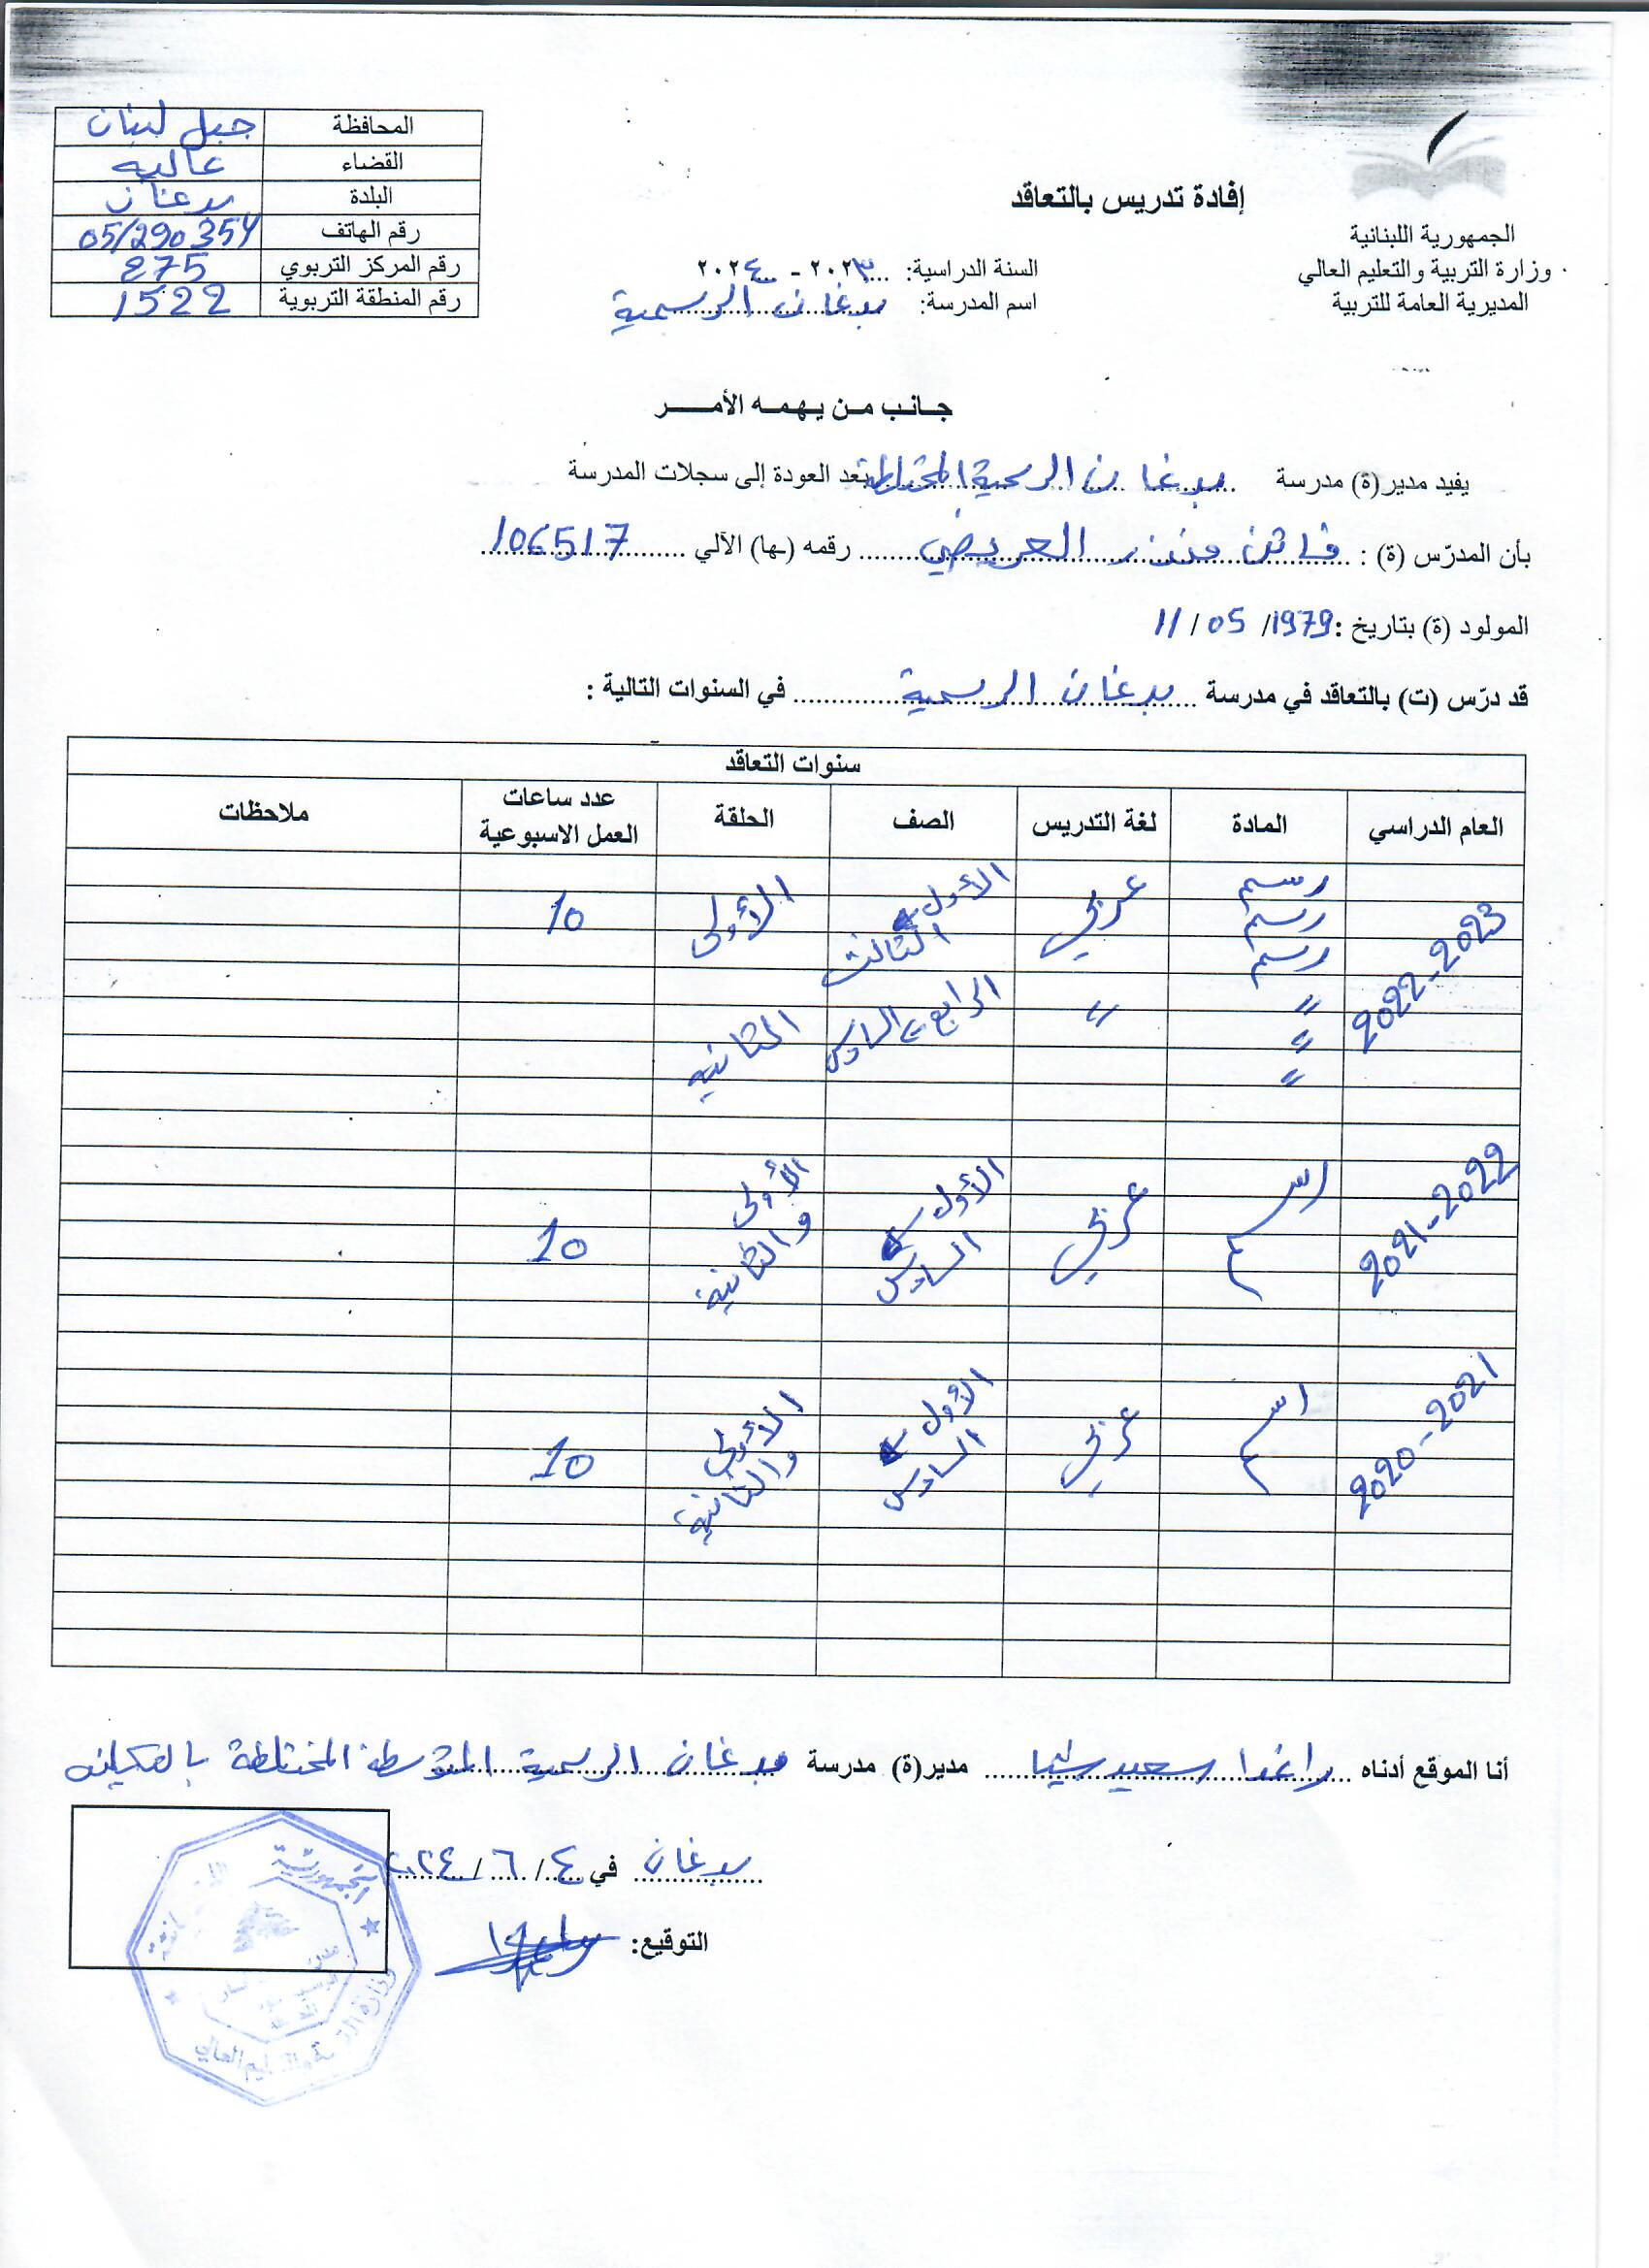 إفادة تدريس بالتعاقد
الجمهورية اللبنانية
وزارة التربية والتعليم العالي
المديرية العامة للتربية
السنة الدراسية: ٢٠٢٣ - ٢٠٢٤
اسم المدرسة: بدغان الرسمية
المحافظة جبل لبنان
القضاء عاليه
البلدة بدغان
رقم الهاتف 05/290354
رقم المركز التربوي 275
رقم المنطقة التربوية 1522
جانب من يهمه الأمر
يفيد مدير(ة) مدرسة بدغان الرسمية المختلطة بعد العودة إلى سجلات المدرسة
بأن المدرّس (ة) : فاتن منذر العريضي رقمه (ـها) الآلي 106517
المولود (ة) بتاريخ : 11/ 05 /1979
قد درّس (ت) بالتعاقد في مدرسة بدغان الرسمية في السنوات التالية :
سنوات التعاقد
العام الدراسي المادة لغة التدريس الصف الحلقة عدد ساعات العمل الاسبوعية ملاحظات
2022-2023 رسم عربي الأول الثالث الأولى 10
رسم
رسم
" " الرابع السادس الثانية
"
"
2021-2022 رسم عربي الأول السادس الأولى والثانية 10
2020-2021 رسم عربي الأول السادس الأولى والثانية 10
أنا الموقع أدناه راغدا سعيد شيا مدير(ة) مدرسة بدغان الرسمية المتوسطة المختلطة بالتكليف
بدغان في ٤/ ٦ / ٢٠٢٤
التوقيع:
الجمهورية
وزارة التربية والتعليم العالي